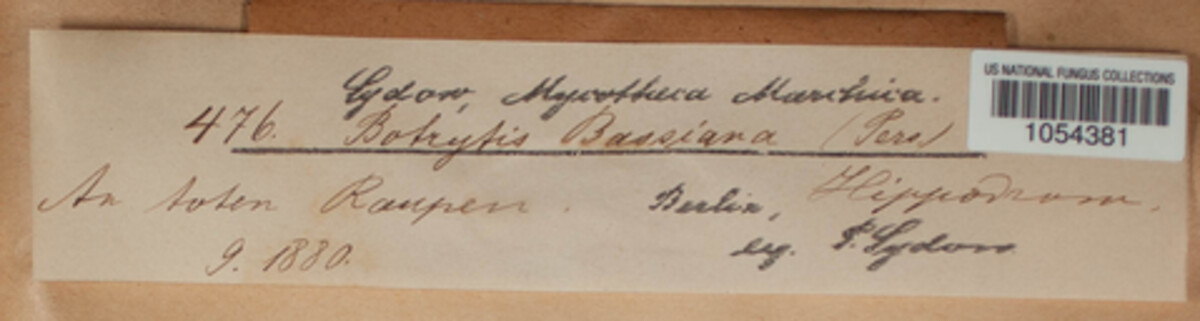 Sydow, Mycotheca Marchica.
476. Botrytis Bassiana (Pers)
An toten Raupen. Berlin, Hippodrom.
9. 1880. leg. P. Sydow
US NATIONAL FUNGUS COLLECTIONS
1054381